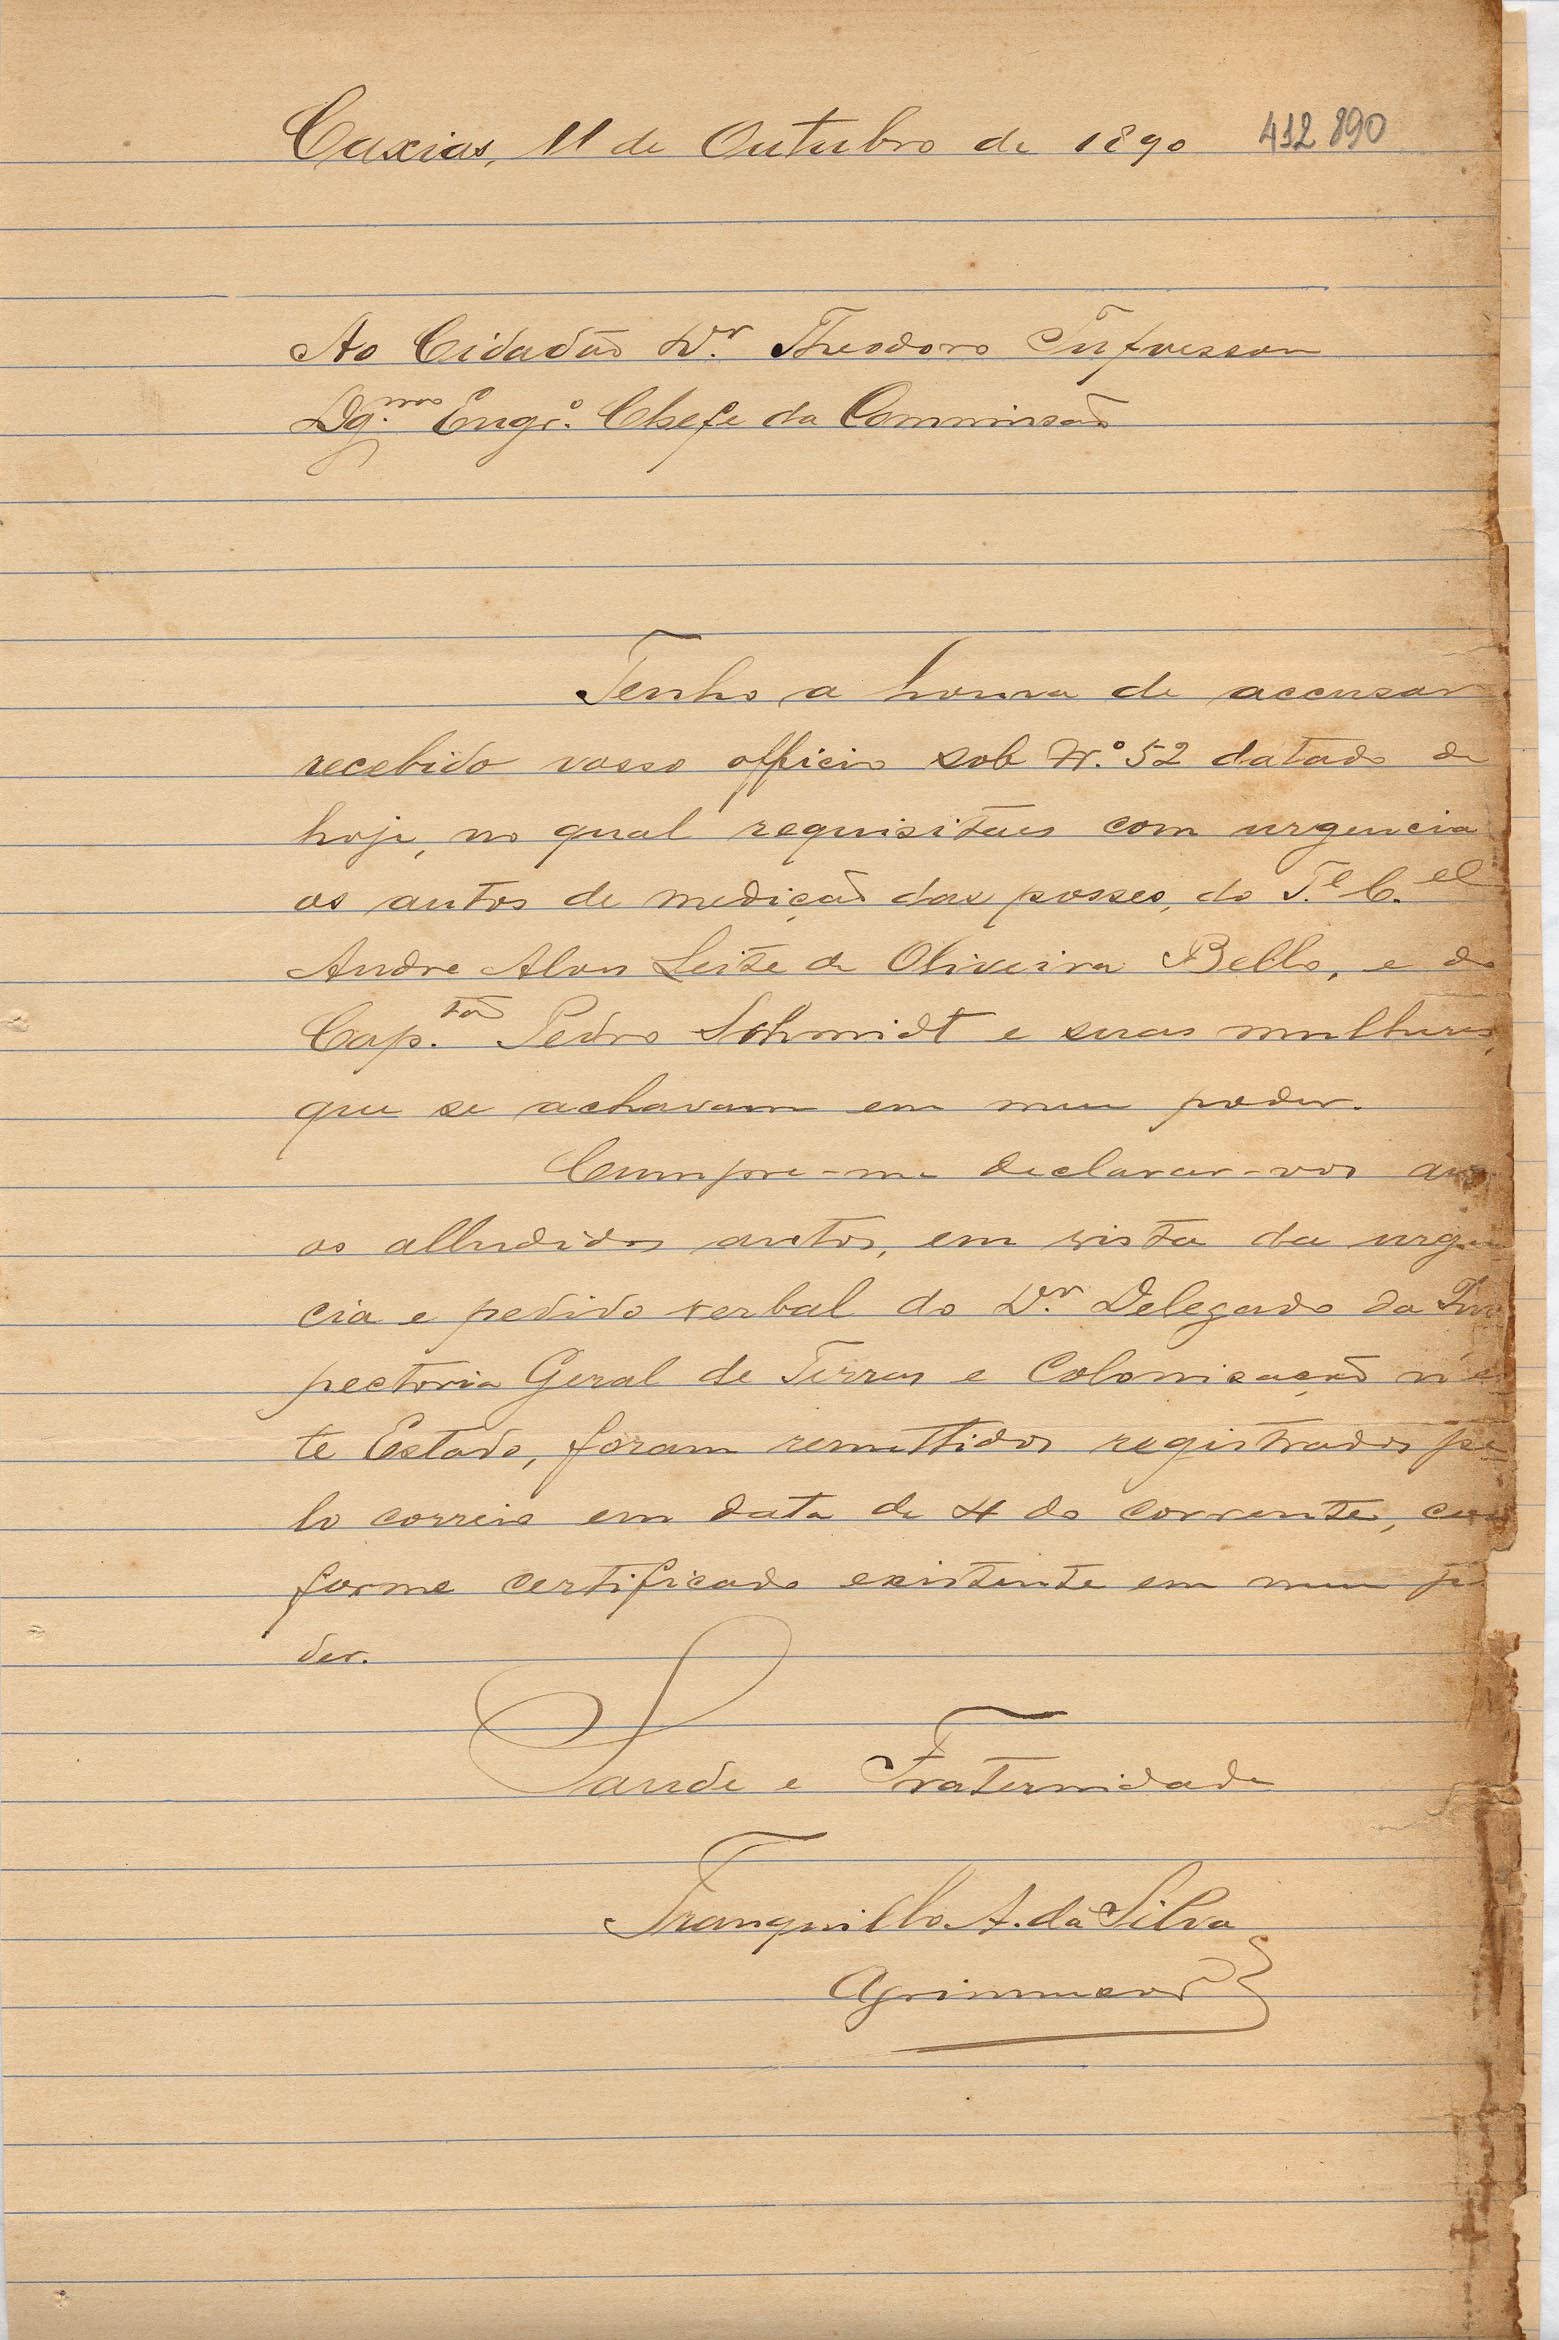 Caxias, 11 de Outubro de 1890 412 890
Ao Cidadão Dr. Theodoro Tufvesson
Dg.mo Engr.º Chefe da Commissão
Tenho a honra de accusar
recebido vosso officio sob N.º 52 datado de
hoje, no qual requisitaes com urgencia
os autos de medição das posses, do T.e C.el
Andre Alves Leite de Oliveira Bello, e do
Cap.tão Pedro Schmidt e suas mulheres,
que se achavam em meu poder.
Cumpre-me declarar-vos que
os alludidos autos, em vista da urgen
cia e pedido verbal do Dr. Delegado da Ins
pectoria Geral de Terras e Colonisação n'es
te Estado, foram remettidos registrados pe
lo correio em data de 4 do corrente, con
forme certificado existente em meu po
der.
Saude e Fraternidade
Tranquillo A. da Silva
Agrimensor